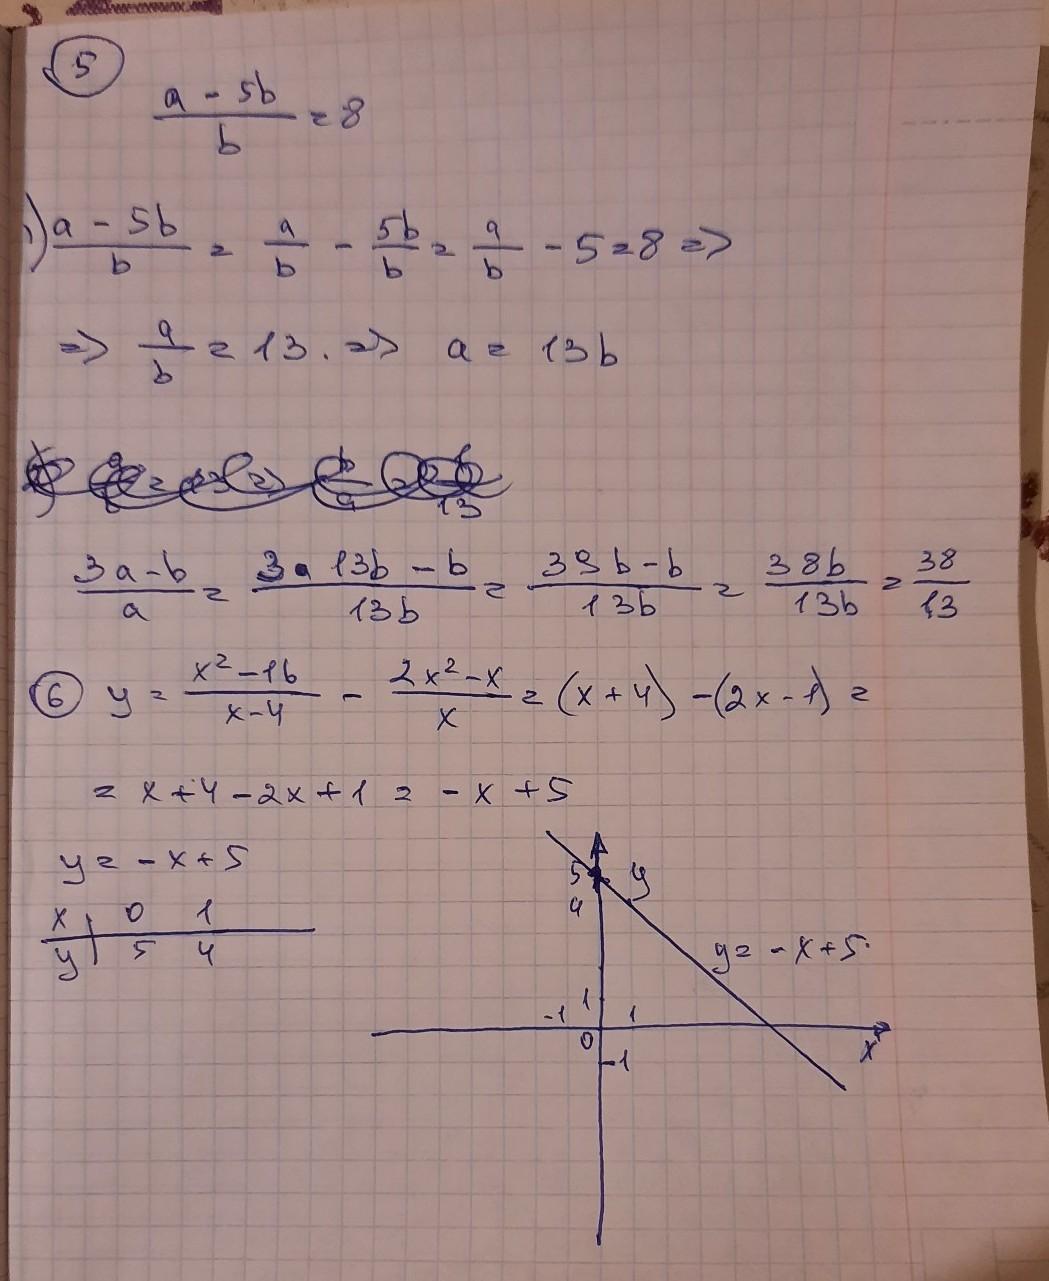 5
a - 5b / b = 8
1) a - 5b / b = a / b - 5b / b = a / b - 5 = 8 =>
=> a / b = 13. => a = 13b
3a - b / a = 3 · 13b - b / 13b = 39b - b / 13b = 38b / 13b = 38 / 13
6 y = x² - 16 / x - 4 - 2x² - x / x = (x + 4) - (2x - 1) =
= x + 4 - 2x + 1 = - x + 5
y = - x + 5
x 0 1
y 5 4
5 y
4
y = - x + 5
1
-1 1
0 x
-1